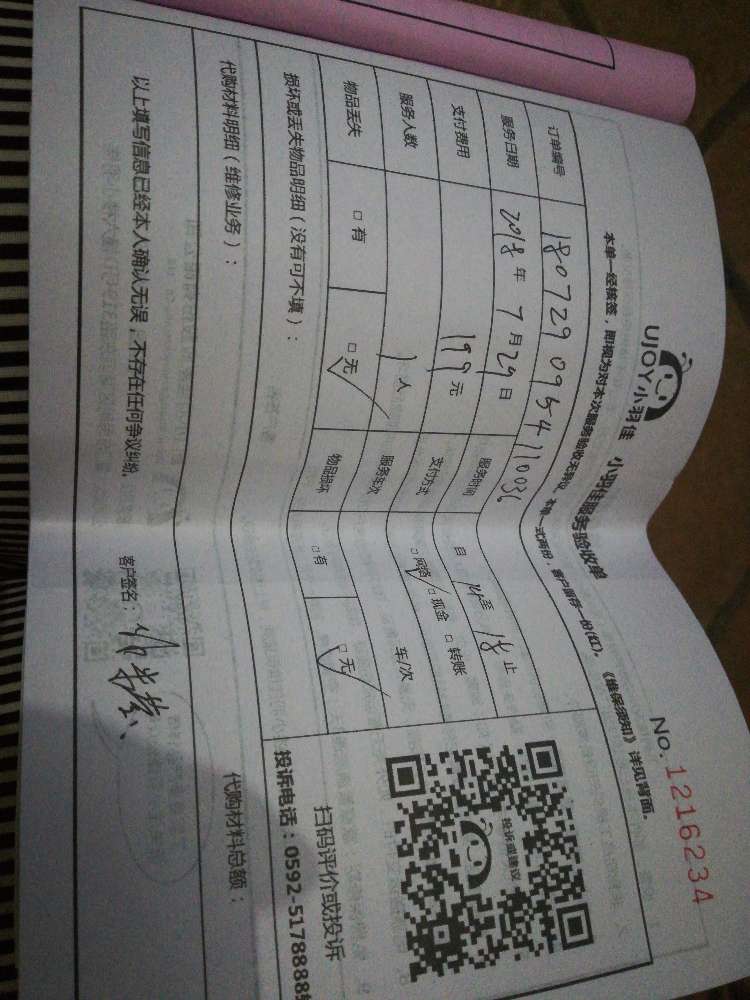 UJOY小羽佳 小羽佳服务验收单
No. 1216234
本单一经核签，即视为对本次服务验收无争议。本单一式两份，客户留存一份(红)。《维保须知》详见背面。
订单编号 180729095411003
服务日期 2018 年 7 月 29 日 服务时间 自 14 至 18 止
支付费用 199 元 支付方式 □网络 □现金 □转账
服务人数 1 人 服务车次 车/次
物品丢失 □有 □无 物品损坏 □有 □无
损坏或丢失物品明细（没有可不填）：
投诉或建议
扫码评价或投诉
投诉电话：0592-5178889
代购材料明细（维修业务）： 代购材料总额：
以上填写信息已经本人确认无误，不存在任何争议纠纷。 客户签名：